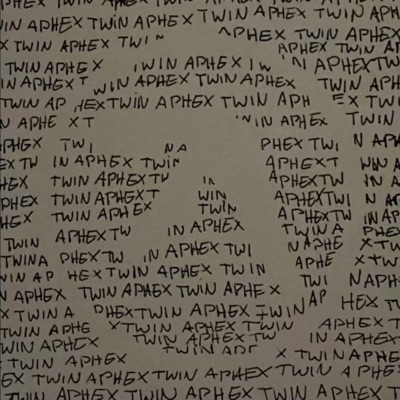 PHEX TWIN APHEX TWIN APHEX TWIN APHEX TWI
IN APHEX TWIN APHEX TWIN APHEX TWIN APH
X TWIN APHEX TWIN APHEX TWIN APHEX
APHEX TWIN AP
TWIN APHEX IWIN APHEX IW IN APHEXTW
IN APHEX T WIN APHEX TWIN APHEX TWIN
TWIN AP HEXTWIN APHEX TWIN APH EX TWI
N APHE XT WIN APHEX TWIN
APHEX TWI NA PHEX TWI N APH
EX TW IN APHEX TWIN APHEXT WIN A
HEX TWIN APHEXTW IN APHEXTW IN A
PHEX TWIN APHEXT WIN APHEXTWI N AP
HEX TWIN APHEX TWIN APHEXTW IN AP
TWIN APHEXTW IN APHEX TWIN A PHEX
TWINA PHEXTW IN APHEX TWI NAPHE XTW
WIN AP HEXTWIN APHEX TWIN APHE XTW
N APHEX TWIN APHEX TWIN APHEX TWI NAPH
X TWIN A PHEXTWIN APHEX TWIN AP HEX T
TWIN APHE XTWIN APHEX TWIN APHEX T
WIN APHEX TWIN APHEXTW IN APHEX
TWIN APHEX TWIN APE X TWINAPHEX
EX TWIN APHEX TWIN APHEX TWIN APHEX
TWIN APHEX TWIN APHEX TWIN APHEX T